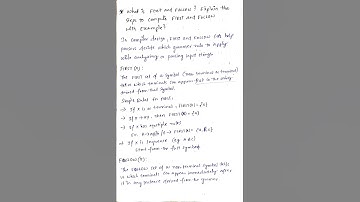 * What is First and Follow? Explain the
steps to compute First and Follow
with example?
In compiler design, First and Follow sets help
parsers decide which grammar rule to apply
while analyzing or parsing input string.
FIRST(X):
The FIRST set of a symbol (non terminal or terminal)
tells which terminals can appear first in the string
derived from that symbol.
Simple Rules for FIRST:
→ If X is a terminal, FIRST(X) = {X}
→ If X has multiple rules
→ If X is sequence
FOLLOW(X):
The FOLLOW set of a non terminal symbol tells
us which terminals can appear immediately after
it in any string derived from the grammar.